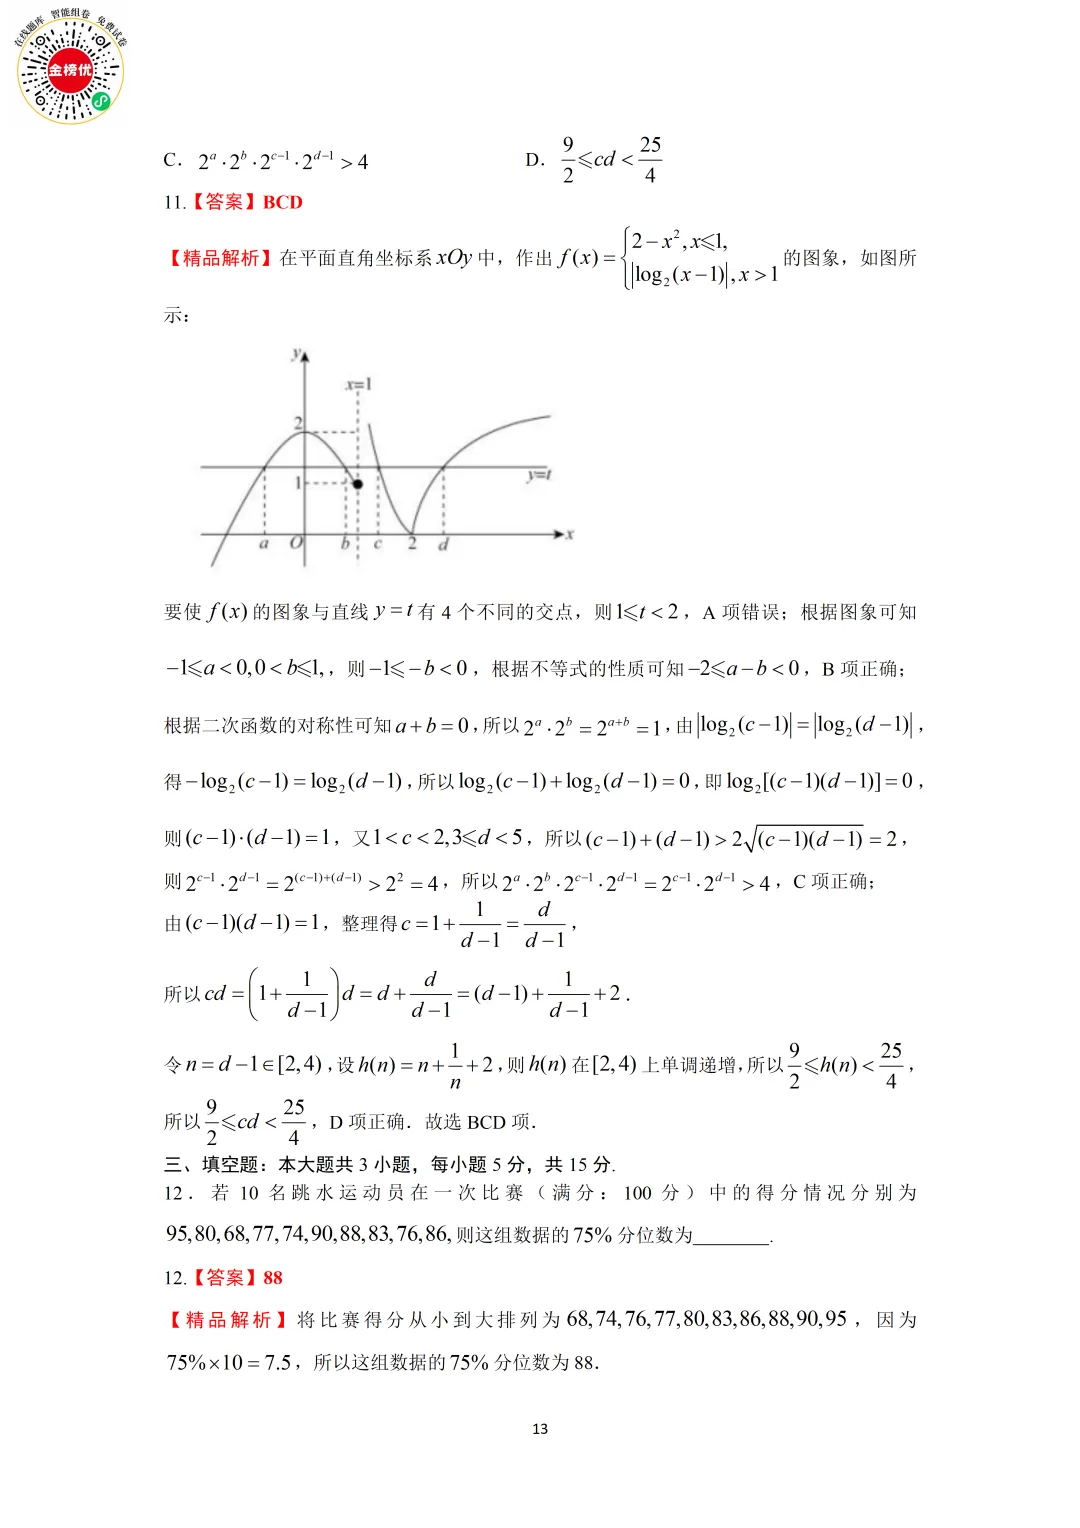 在线题库 智能组卷 免费试卷
金榜优
C．2^a·2^b·2^{c−1}·2^{d−1}＞4 D．9/2⩽cd＜25/4
11.【答案】BCD
【精品解析】在平面直角坐标系xOy中，作出 f(x)={2−x²,x⩽1, |log₂(x−1)|,x＞1 的图象，如图所
示：
y
x=1
2
1
y=t
a O b c 2 d x
要使 f(x) 的图象与直线 y=t 有 4 个不同的交点，则1⩽t＜2，A 项错误；根据图象可知
−1⩽a＜0,0＜b⩽1,，则−1⩽−b＜0，根据不等式的性质可知−2⩽a−b＜0，B 项正确；
根据二次函数的对称性可知a+b=0，所以2^a·2^b=2^{a+b}=1，由|log₂(c−1)|=|log₂(d−1)|，
得−log₂(c−1)=log₂(d−1)，所以log₂(c−1)+log₂(d−1)=0，即log₂[(c−1)(d−1)]=0，
则(c−1)·(d−1)=1，又1＜c＜2,3⩽d＜5，所以(c−1)+(d−1)＞2√(c−1)(d−1)=2，
则2^{c−1}·2^{d−1}=2^{(c−1)+(d−1)}＞2²=4，所以2^a·2^b·2^{c−1}·2^{d−1}=2^{c−1}·2^{d−1}＞4，C 项正确；
由(c−1)(d−1)=1，整理得c=1+1/(d−1)=d/(d−1)，
所以cd=(1+1/(d−1))d=d+d/(d−1)=(d−1)+1/(d−1)+2．
令n=d−1∈[2,4)，设h(n)=n+1/n+2，则h(n)在[2,4)上单调递增，所以9/2⩽h(n)＜25/4，
所以9/2⩽cd＜25/4，D 项正确．故选 BCD 项．
三、填空题：本大题共 3 小题，每小题 5 分，共 15 分.
12．若 10 名跳水运动员在一次比赛（满分：100 分）中的得分情况分别为
95,80,68,77,74,90,88,83,76,86,则这组数据的75%分位数为________.
12.【答案】88
【精品解析】将比赛得分从小到大排列为 68,74,76,77,80,83,86,88,90,95，因为
75%×10=7.5，所以这组数据的75%分位数为 88．
13